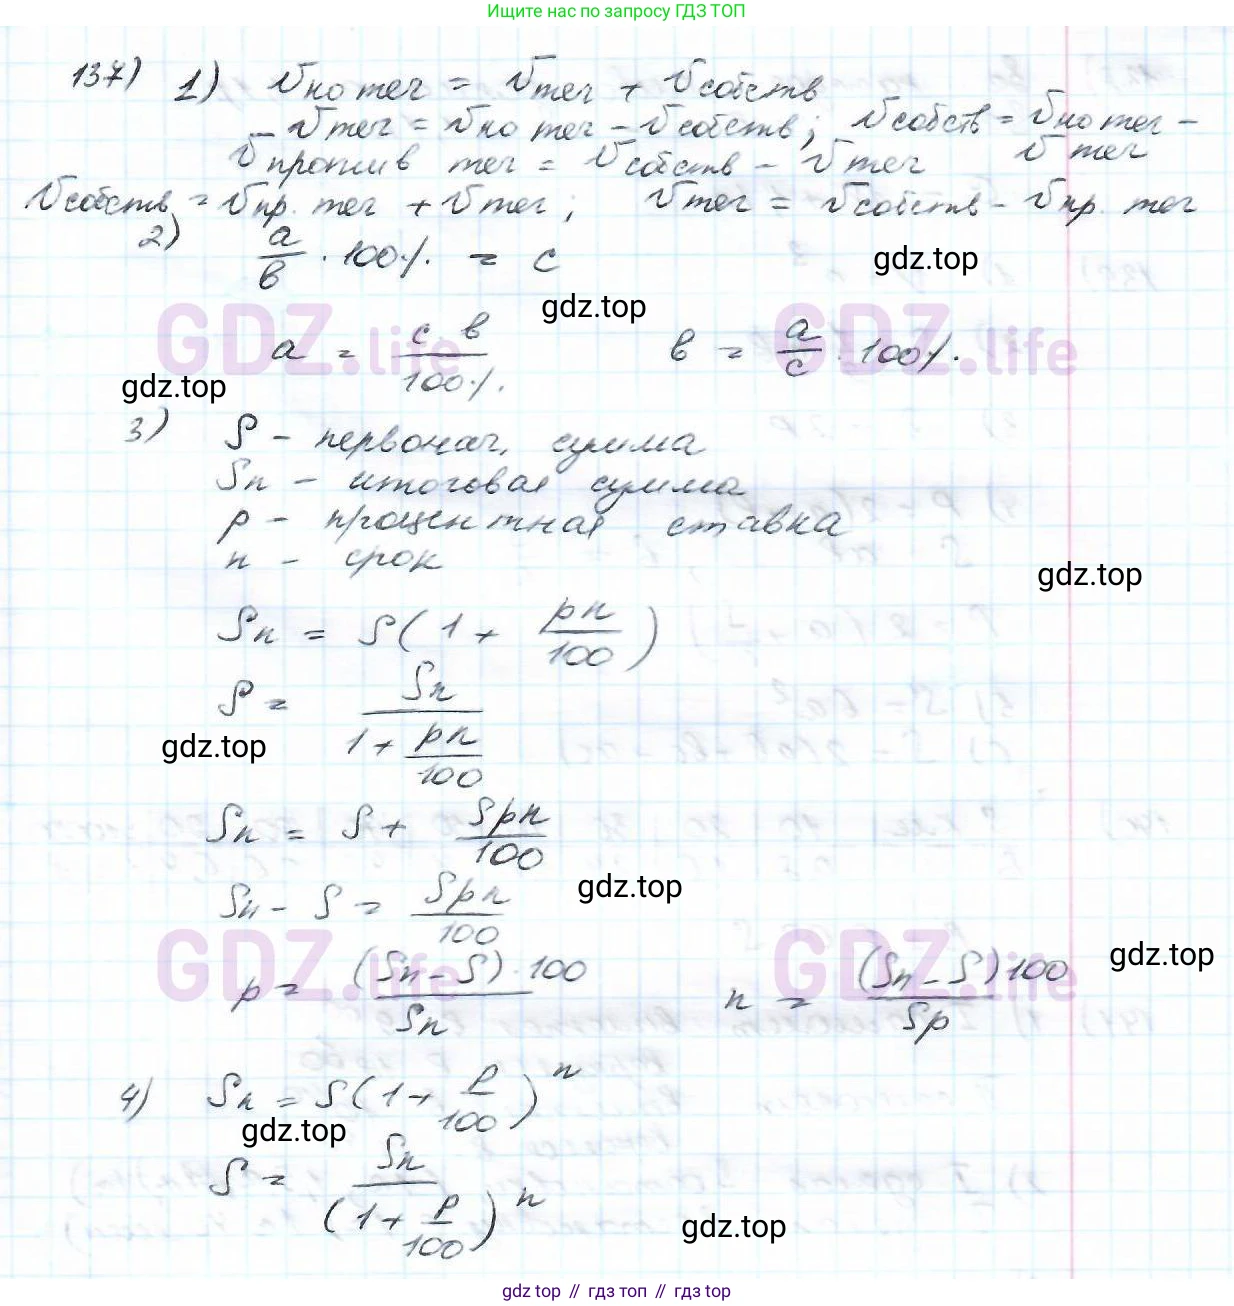 Ищите нас по запросу ГДЗ ТОП
137) 1) v по теч = v теч + v собств
- v теч = v по теч - v собств; v собств = v по теч -
v против теч = v собств - v теч v теч
v собств = v пр. теч + v теч; v теч = v собств - v пр. теч
2) a/в · 100% = c
gdz.top
gdz.top
GDZ.life GDZ.life
a = c в / 100% в = a/c · 100%.
gdz.top
3) S - первонач. сумма
Sn - итоговая сумма
p - процентная ставка
n - срок
gdz.top
Sn = S(1 + pn/100)
S = Sn / (1 + pn/100)
gdz.top
Sn = S + Spn/100
gdz.top
Sn - S = Spn/100
GDZ.life GDZ.life
gdz.top
p = (Sn - S) · 100 / Sn n = (Sn - S) 100 / Sp
4) Sn = S(1 + p/100)^n
gdz.top
S = Sn / (1 + p/100)^n
gdz.top
gdz top // гдз топ // гдз top